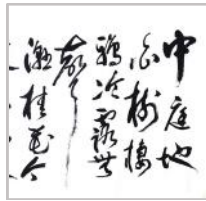 中庭地
白树棲
鸦冷露無
声
湿桂花今